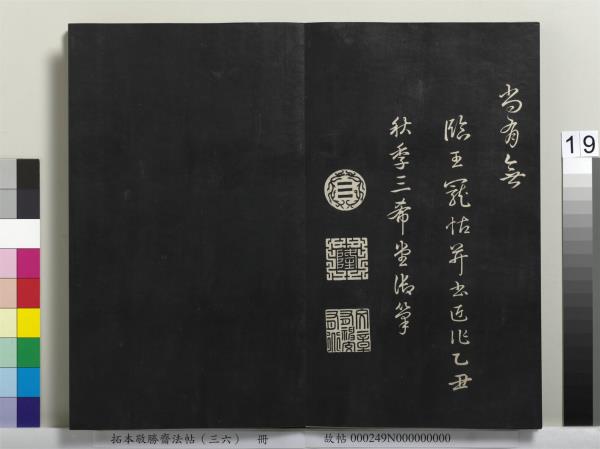 尚有無
臨王寵帖并書近作乙丑
秋季三希堂御筆
19
拓本敬勝齋法帖（三六） 冊
故帖 000249N000000000